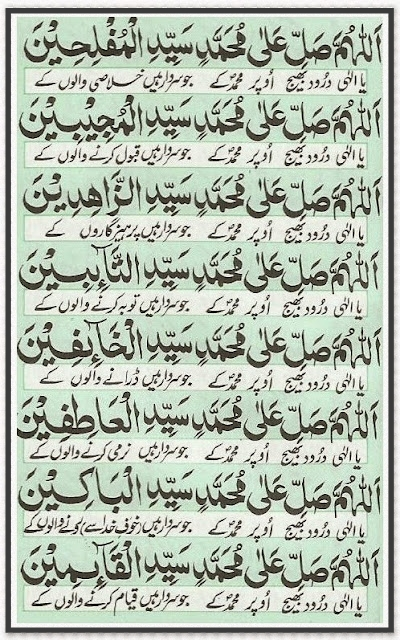 اَللّٰهُمَّ صَلِّ عَلٰى مُحَمَّدٍ سَيِّدِ الْمُفْلِحِيْنَ
یا الٰہی درود بھیج اُوپر محمدؐ کے جو سردار ہیں خلاصی والوں کے
اَللّٰهُمَّ صَلِّ عَلٰى مُحَمَّدٍ سَيِّدِ الْمُجِيْبِيْنَ
یا الٰہی درود بھیج اُوپر محمدؐ کے جو سردار ہیں قبول کرنے والوں کے
اَللّٰهُمَّ صَلِّ عَلٰى مُحَمَّدٍ سَيِّدِ الزَّاهِدِيْنَ
یا الٰہی درود بھیج اُوپر محمدؐ کے جو سردار ہیں پرہیزگاروں کے
اَللّٰهُمَّ صَلِّ عَلٰى مُحَمَّدٍ سَيِّدِ التَّآئِبِيْنَ
یا الٰہی درود بھیج اُوپر محمدؐ کے جو سردار ہیں توبہ کرنے والوں کے
اَللّٰهُمَّ صَلِّ عَلٰى مُحَمَّدٍ سَيِّدِ الْخَآئِفِيْنَ
یا الٰہی درود بھیج اُوپر محمدؐ کے جو سردار ہیں ڈرانے والوں کے
اَللّٰهُمَّ صَلِّ عَلٰى مُحَمَّدٍ سَيِّدِ الْعَاطِفِيْنَ
یا الٰہی درود بھیج اُوپر محمدؐ کے جو سردار ہیں نرمی کرنے والوں کے
اَللّٰهُمَّ صَلِّ عَلٰى مُحَمَّدٍ سَيِّدِ الْبَاكِيْنَ
یا الٰہی درود بھیج اُوپر محمدؐ کے جو سردار ہیں (خوف خدا سے) والوں کے
اَللّٰهُمَّ صَلِّ عَلٰى مُحَمَّدٍ سَيِّدِ الْقَآئِمِيْنَ
یا الٰہی درود بھیج اُوپر محمدؐ کے جو سردار ہیں قیام کرنے والوں کے